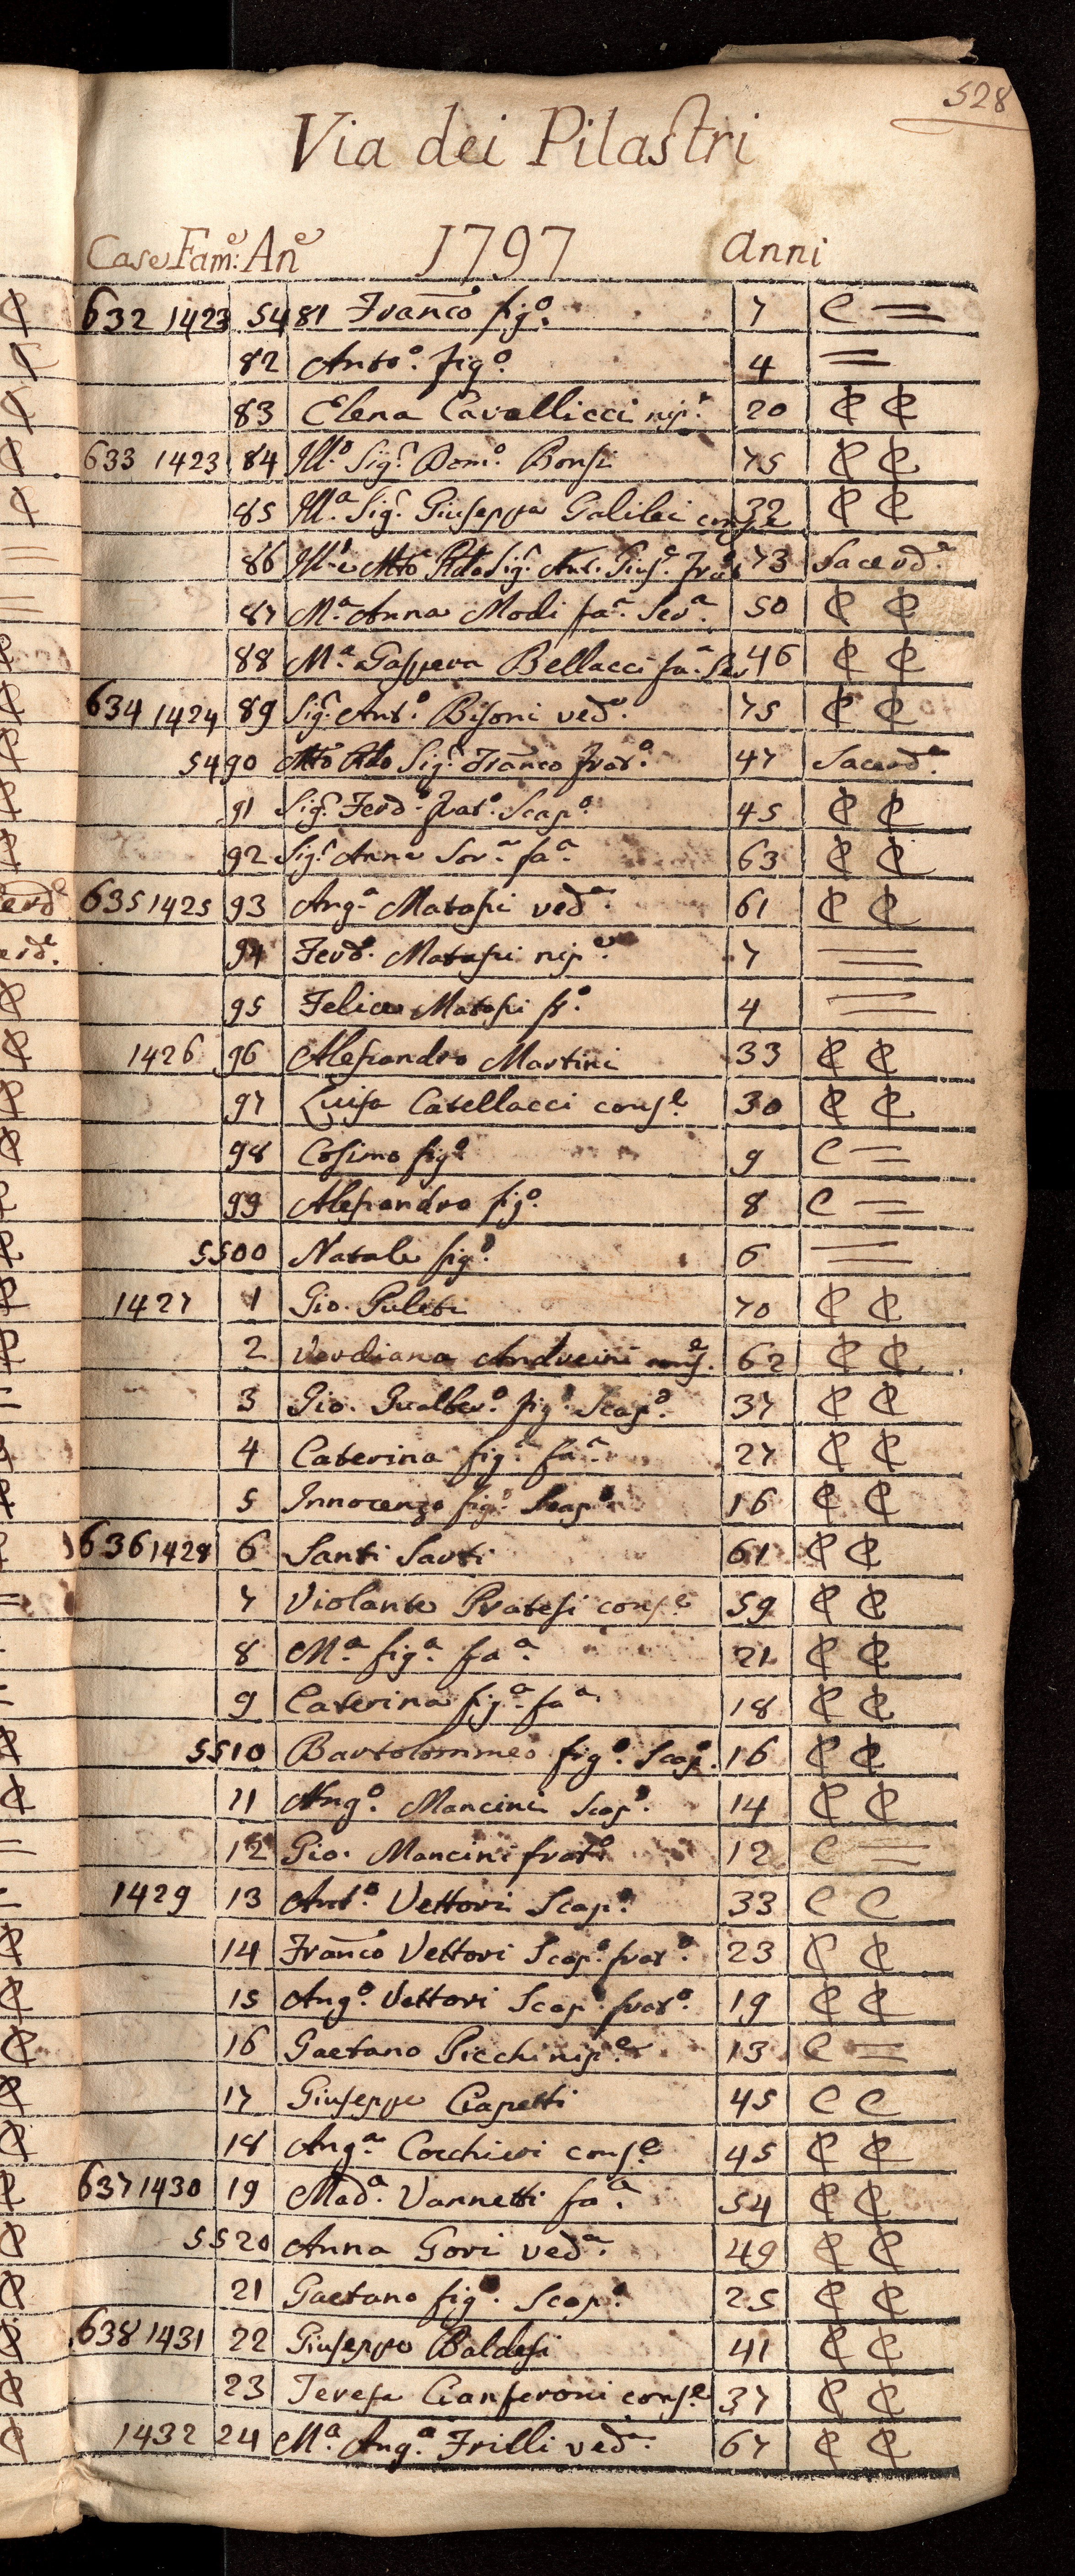 528
Via dei Pilastri
Case Fam:e An:e 1797 anni
632 1423 5481 Franco figo. 7 C =
82 Anto. figo. 4 =
83 Elena Cavallicci nipe. 20 ₵ ₵
633 1423 84 Illo. Sigr. Domo. Bonsi 75 ₵ ₵
85 Illa. Sigr. Giuseppa Galilei conse 32 ₵ ₵
86 Illre Mto Rdo Sigr. Ant. Giuse. frao 73 Sacerde.
87 Ma. Anna Modi faa. Sera. 50 ₵ ₵
88 Ma. Gaspera Bellacci faa. Ser 46 ₵ ₵
634 1424 89 Sigr. Anto. Bisoni vedo. 75 ₵ ₵
5490 Mto Rdo Sigr. Franco frato. 47 Sacerde.
91 Sigr. Ferdo. frato. Scapo. 45 ₵ ₵
92 Sigr. Anna Sora. faa. 63 ₵ ₵
635 1425 93 Anga. Matassi veda. 61 ₵ ₵
94 Ferdo. Matassi nipe. 7 =
95 Felice Matassi fo. 4 =
1426 96 Alessandro Martini 33 ₵ ₵
97 Luisa Catellacci conse. 30 ₵ ₵
98 Cosimo figo. 9 C =
99 Alessandro figo. 8 C =
5500 Natale figo. 6 =
1427 1 Gio. Puliti 70 ₵ ₵
2 Verdiana Andreini conse. 62 ₵ ₵
3 Gio. Gualbero. figo. Scapo. 37 ₵ ₵
4 Caterina figa. faa. 27 ₵ ₵
5 Innocenzo figo. Scapo. 16 ₵ ₵
636 1428 6 Santi Sarti 61 ₵ ₵
7 Violante Pratesi conse. 59 ₵ ₵
8 Ma. figa. faa. 21 ₵ ₵
9 Caterina figa. faa. 18 ₵ ₵
5510 Bartolommeo figo. Scapo. 16 ₵ ₵
11 Ango. Mancini Scapo. 14 ₵ ₵
12 Gio. Mancini frato. 12 C =
1429 13 Anto. Vettori Scapo. 33 C C
14 Franco Vettori Scapo. frato. 23 ₵ ₵
15 Ango. Vettori Scapo. frato. 19 ₵ ₵
16 Gaetano Picchi nipe. 13 C =
17 Giuseppe Ciapetti 45 C C
18 Anga. Cocchieri conse. 45 ₵ ₵
637 1430 19 Mada. Vannetti faa. 54 ₵ ₵
5520 Anna Gori veda. 49 ₵ ₵
21 Gaetano figo. Scapo. 25 ₵ ₵
638 1431 22 Giuseppe Baldesi 41 ₵ ₵
23 Teresa Cianferoni conse. 37 ₵ ₵
1432 24 Ma. Anga. Frilli veda. 67 ₵ ₵